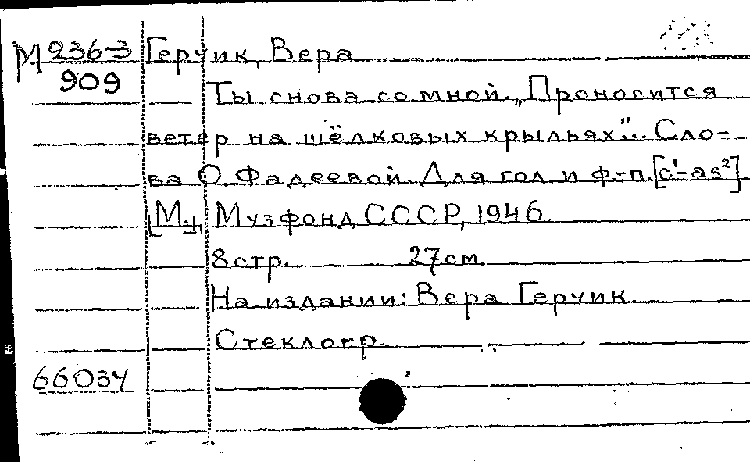 М 236-3 Герчик, Вера
909
Ты снова со мной. „Проносится
ветер на шёлковых крыльях"... Сло-
ва О. Фадеевой. Для гол. и ф.-п. [c¹-as²]
[М.], Музфонд СССР, 1946.
8 стр. 27 см.
На издании: Вера Герчик
Стеклогр.
66034